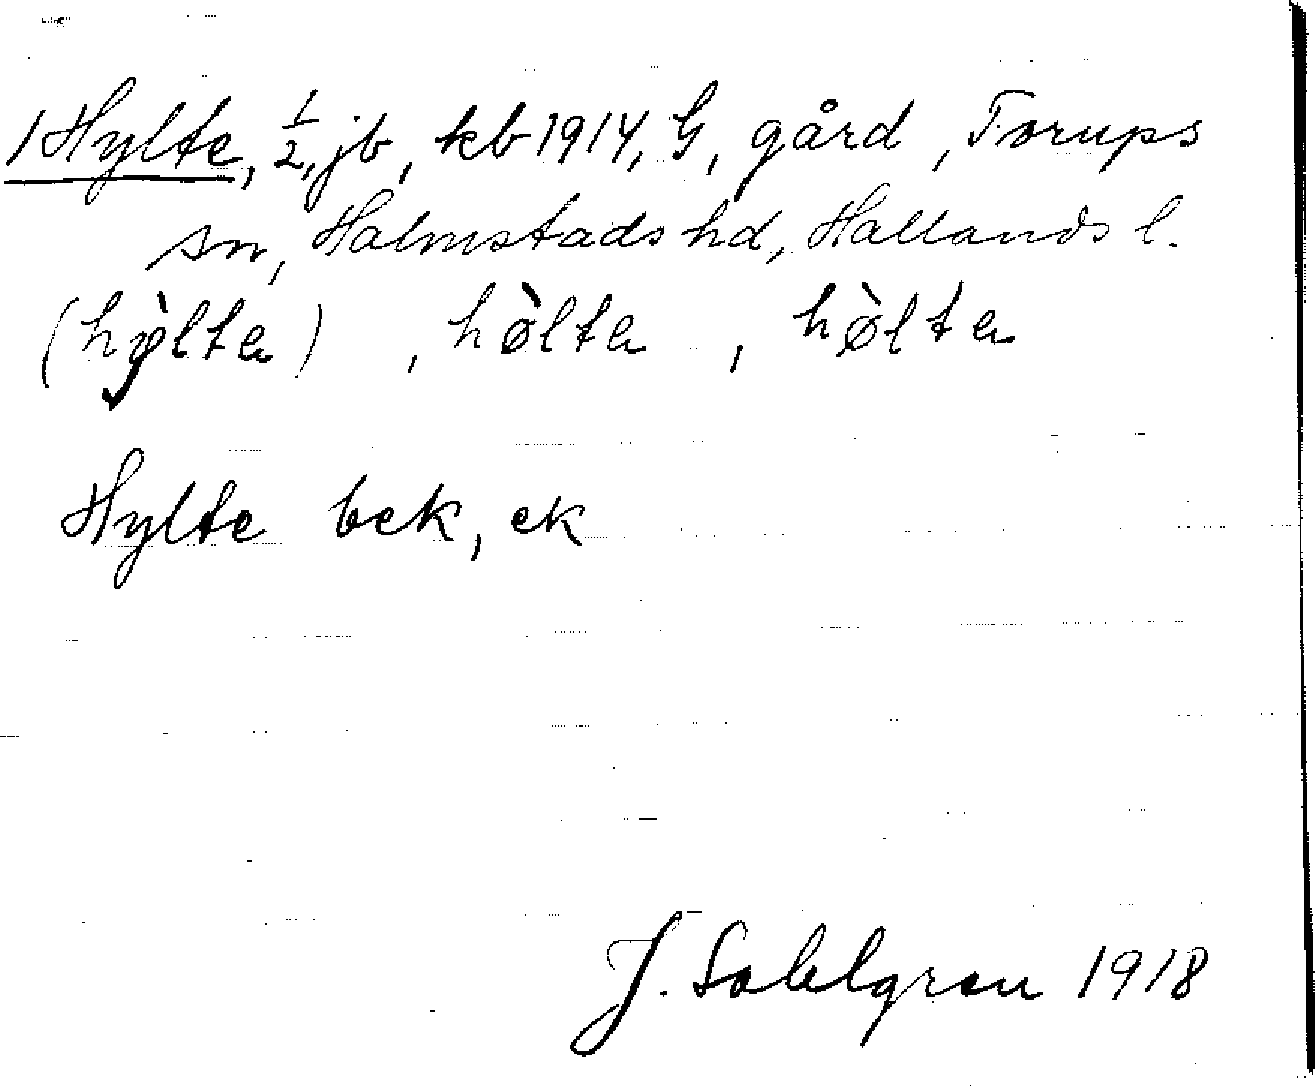 1 Hylte, 1/2, jb, kb 1914, G, gård, Torups
sn, Halmstads hd, Hallands l.
(hỳlta), hø̀lta, hø̀lta
Hylte bek, ek
J. Sahlgren 1918